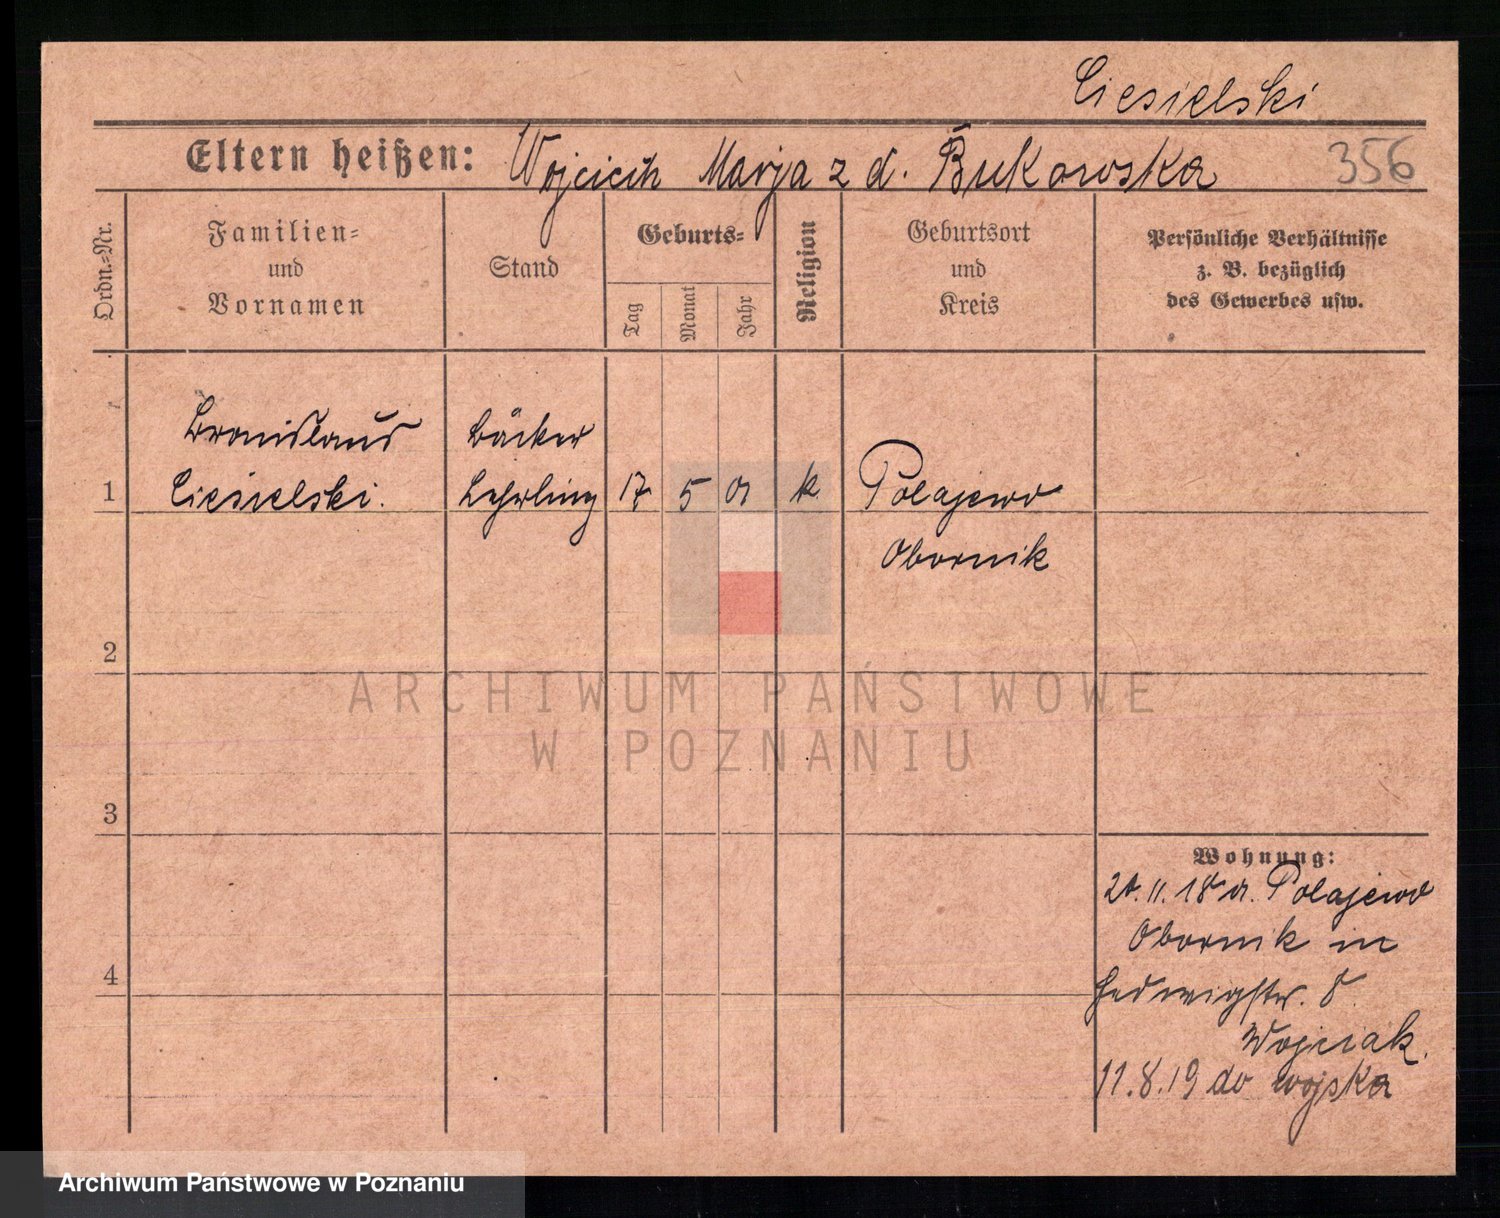 Ciesielski
Eltern heißen: Wojciech Marja z d. Bukowska 356
Ordn.-Nr.
Familien-
und
Vornamen
Stand
Geburts-
Tag
Monat
Jahr
Religion
Geburtsort
und
Kreis
Persönliche Verhältnisse
z. B. bezüglich
des Gewerbes usw.
Bronislaus Bäcker
1 Ciesielski. Lehrling 17 5 01 k Polajewo
Obornik
2
3
4
Wohnung:
11. 18 a. Polajewo
Obornik in
Hedwigstr. 8
Wojciak.
11.8.19 do wojska
ARCHIWUM PAŃSTWOWE
W POZNANIU
Archiwum Państwowe w Poznaniu